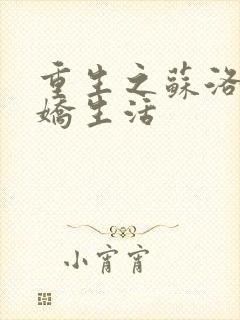 重生之蘇洛
嬌生活
小宵宵